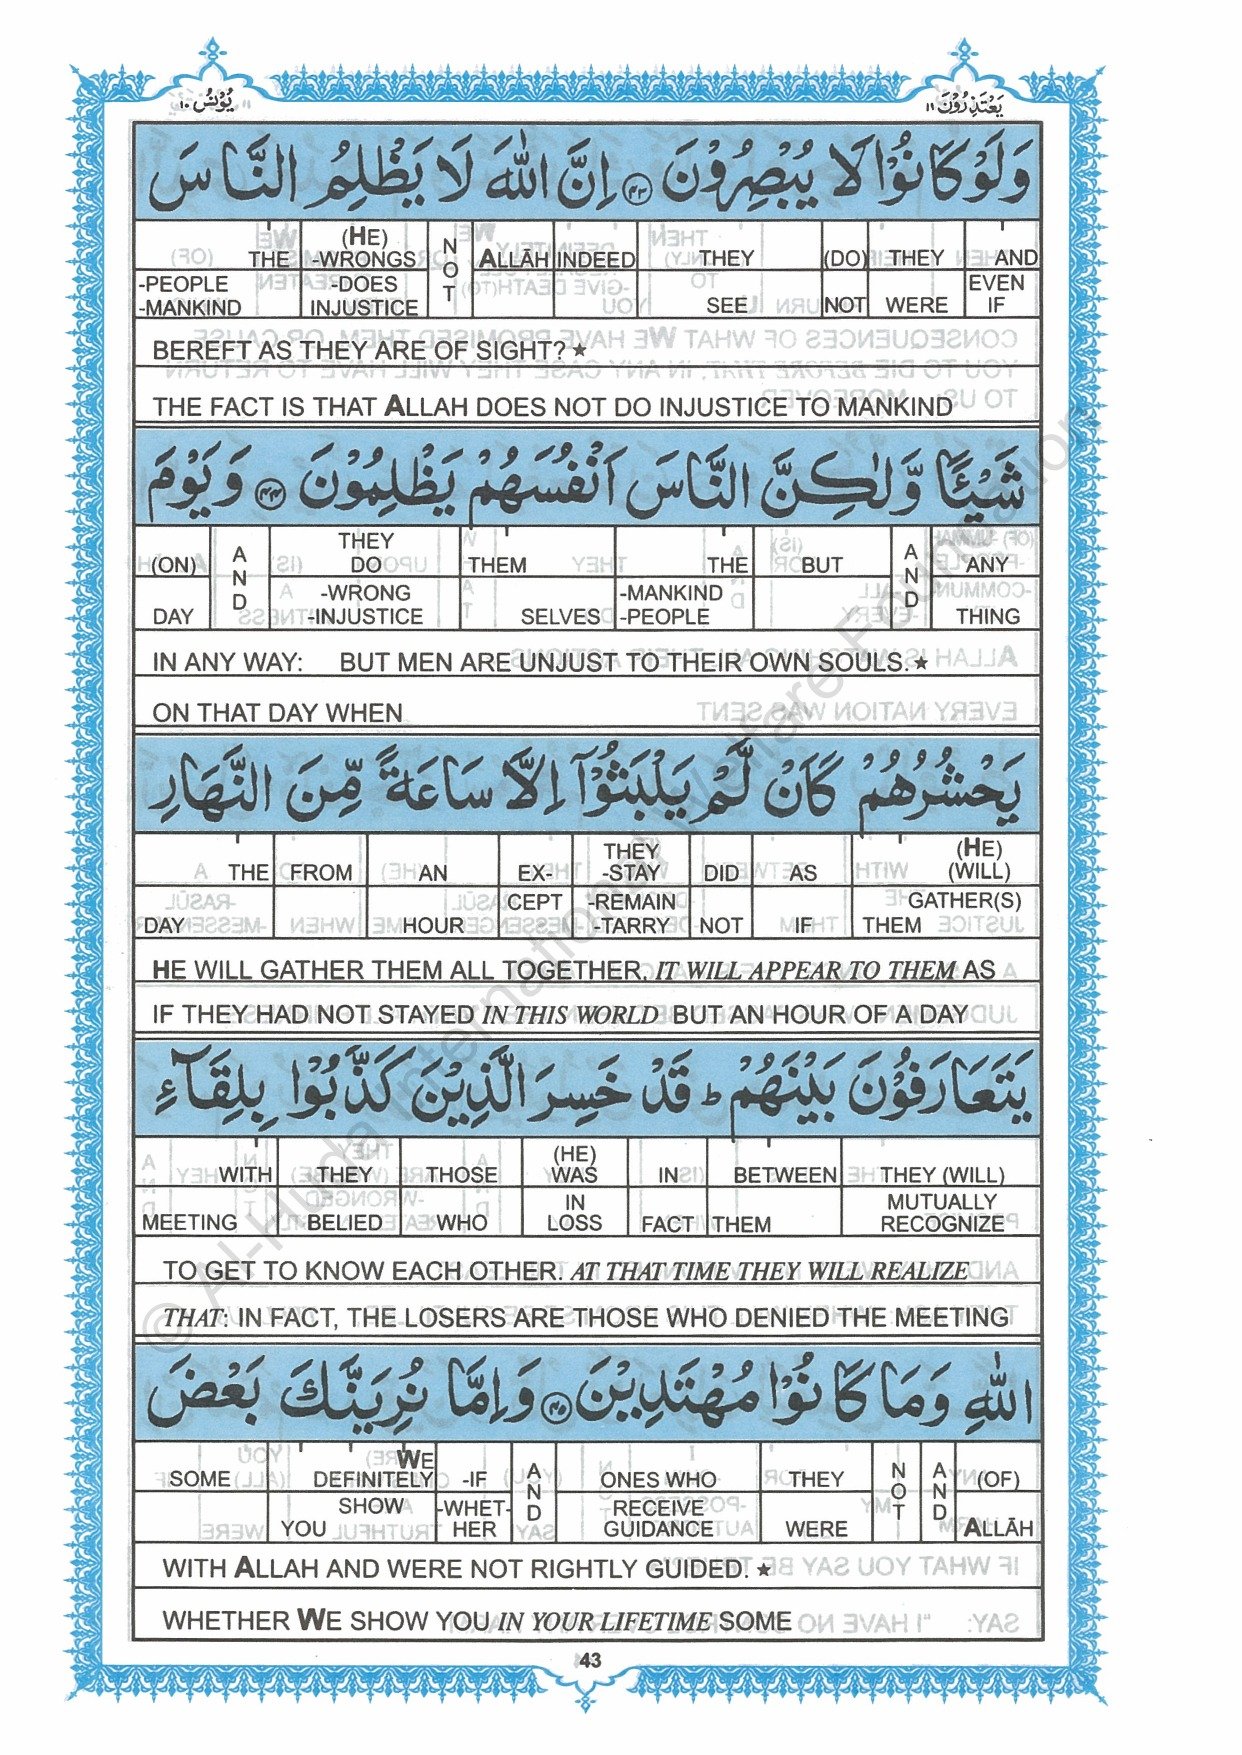 يُوْنُسُ ١٠
يَعْتَذِرُوْنَ ١١
وَلَوْ كَانُوْا لَا يُبْصِرُوْنَ ﴿٤٣﴾ اِنَّ اللّٰهَ لَا يَظْلِمُ النَّاسَ
THE (HE) -WRONGS NOT ALLĀH INDEED THEY (DO) THEY AND
-PEOPLE -MANKIND -DOES INJUSTICE SEE NOT WERE EVEN IF
BEREFT AS THEY ARE OF SIGHT?★
THE FACT IS THAT ALLAH DOES NOT DO INJUSTICE TO MANKIND
شَيْـًٔا وَّلٰكِنَّ النَّاسَ اَنْفُسَهُمْ يَظْلِمُوْنَ ﴿٤٤﴾ وَيَوْمَ
(ON) AND THEY DO THEM THE BUT AND ANY
DAY -WRONG -INJUSTICE SELVES -MANKIND -PEOPLE THING
IN ANY WAY: BUT MEN ARE UNJUST TO THEIR OWN SOULS.★
ON THAT DAY WHEN
يَحْشُرُهُمْ كَاَنْ لَّمْ يَلْبَثُوْٓا اِلَّا سَاعَةً مِّنَ النَّهَارِ
THE FROM AN EX- THEY -STAY DID AS (HE) (WILL)
DAY HOUR CEPT -REMAIN -TARRY NOT IF GATHER(S) THEM
HE WILL GATHER THEM ALL TOGETHER. IT WILL APPEAR TO THEM AS
IF THEY HAD NOT STAYED IN THIS WORLD BUT AN HOUR OF A DAY
يَتَعَارَفُوْنَ بَيْنَهُمْ ؕ قَدْ خَسِرَ الَّذِيْنَ كَذَّبُوْا بِلِقَآءِ
WITH THEY THOSE (HE) WAS IN BETWEEN THEY (WILL)
MEETING BELIED WHO IN LOSS FACT THEM MUTUALLY RECOGNIZE
TO GET TO KNOW EACH OTHER. AT THAT TIME THEY WILL REALIZE
THAT: IN FACT, THE LOSERS ARE THOSE WHO DENIED THE MEETING
اللّٰهِ وَمَا كَانُوْا مُهْتَدِيْنَ ﴿٤٥﴾ وَاِمَّا نُرِيَنَّكَ بَعْضَ
SOME WE DEFINITELY -IF AND ONES WHO THEY NOT AND (OF)
SHOW YOU -WHETHER RECEIVE GUIDANCE WERE ALLĀH
WITH ALLAH AND WERE NOT RIGHTLY GUIDED. ★
WHETHER WE SHOW YOU IN YOUR LIFETIME SOME
43
© Al-Huda International Welfare Foundation